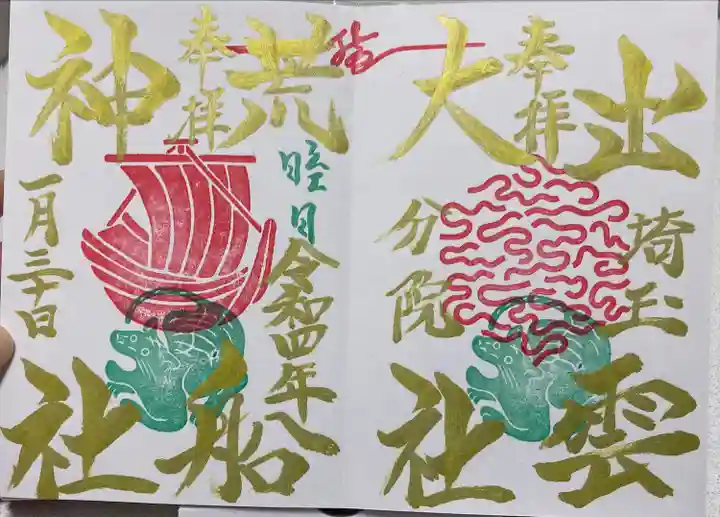 出雲
埼玉
奉拝
大社
分院
荒船
奉拝
神社
令和四年八
一月三十日